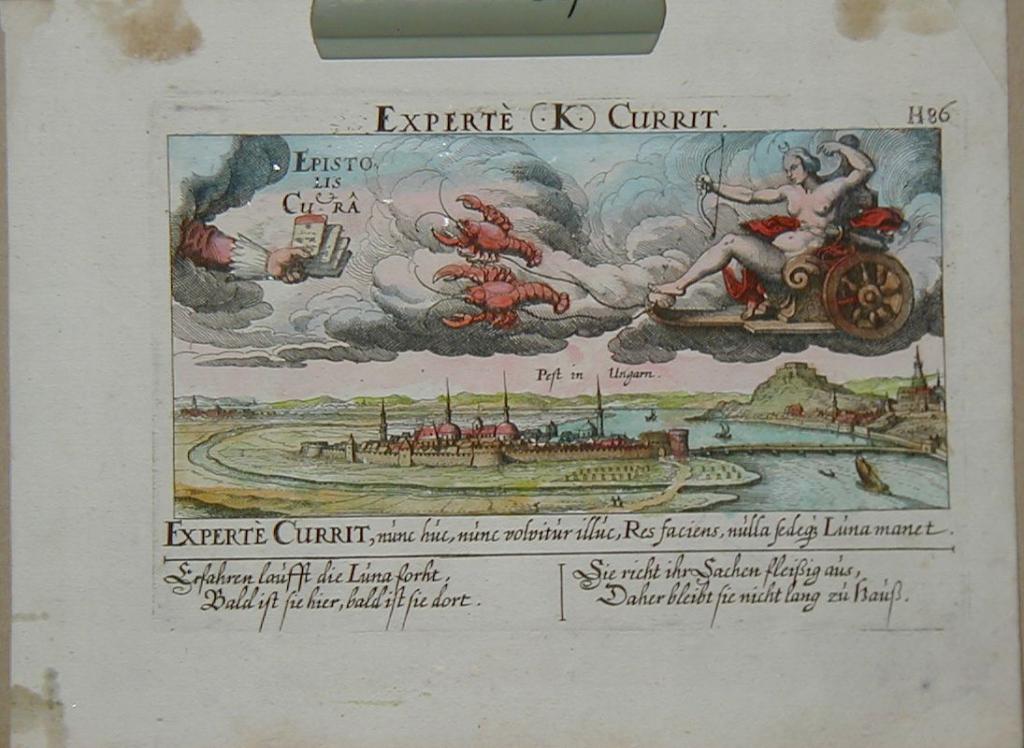 EXPERTÈ (·K·) CURRIT.
H86
EPISTO,
LIS
CURÂ
Pest in Ungarn.
EXPERTÈ CURRIT, nunc huc, nunc volvitur illuc, Res faciens, nulla sedeq3 Luna manet.
Erfahren laufft die Luna forht,
Bald ist sie hier, bald ist sie dort.
Sie richt ihr Sachen fleißig aus,
Daher bleibt sie nicht lang zu Hauß.